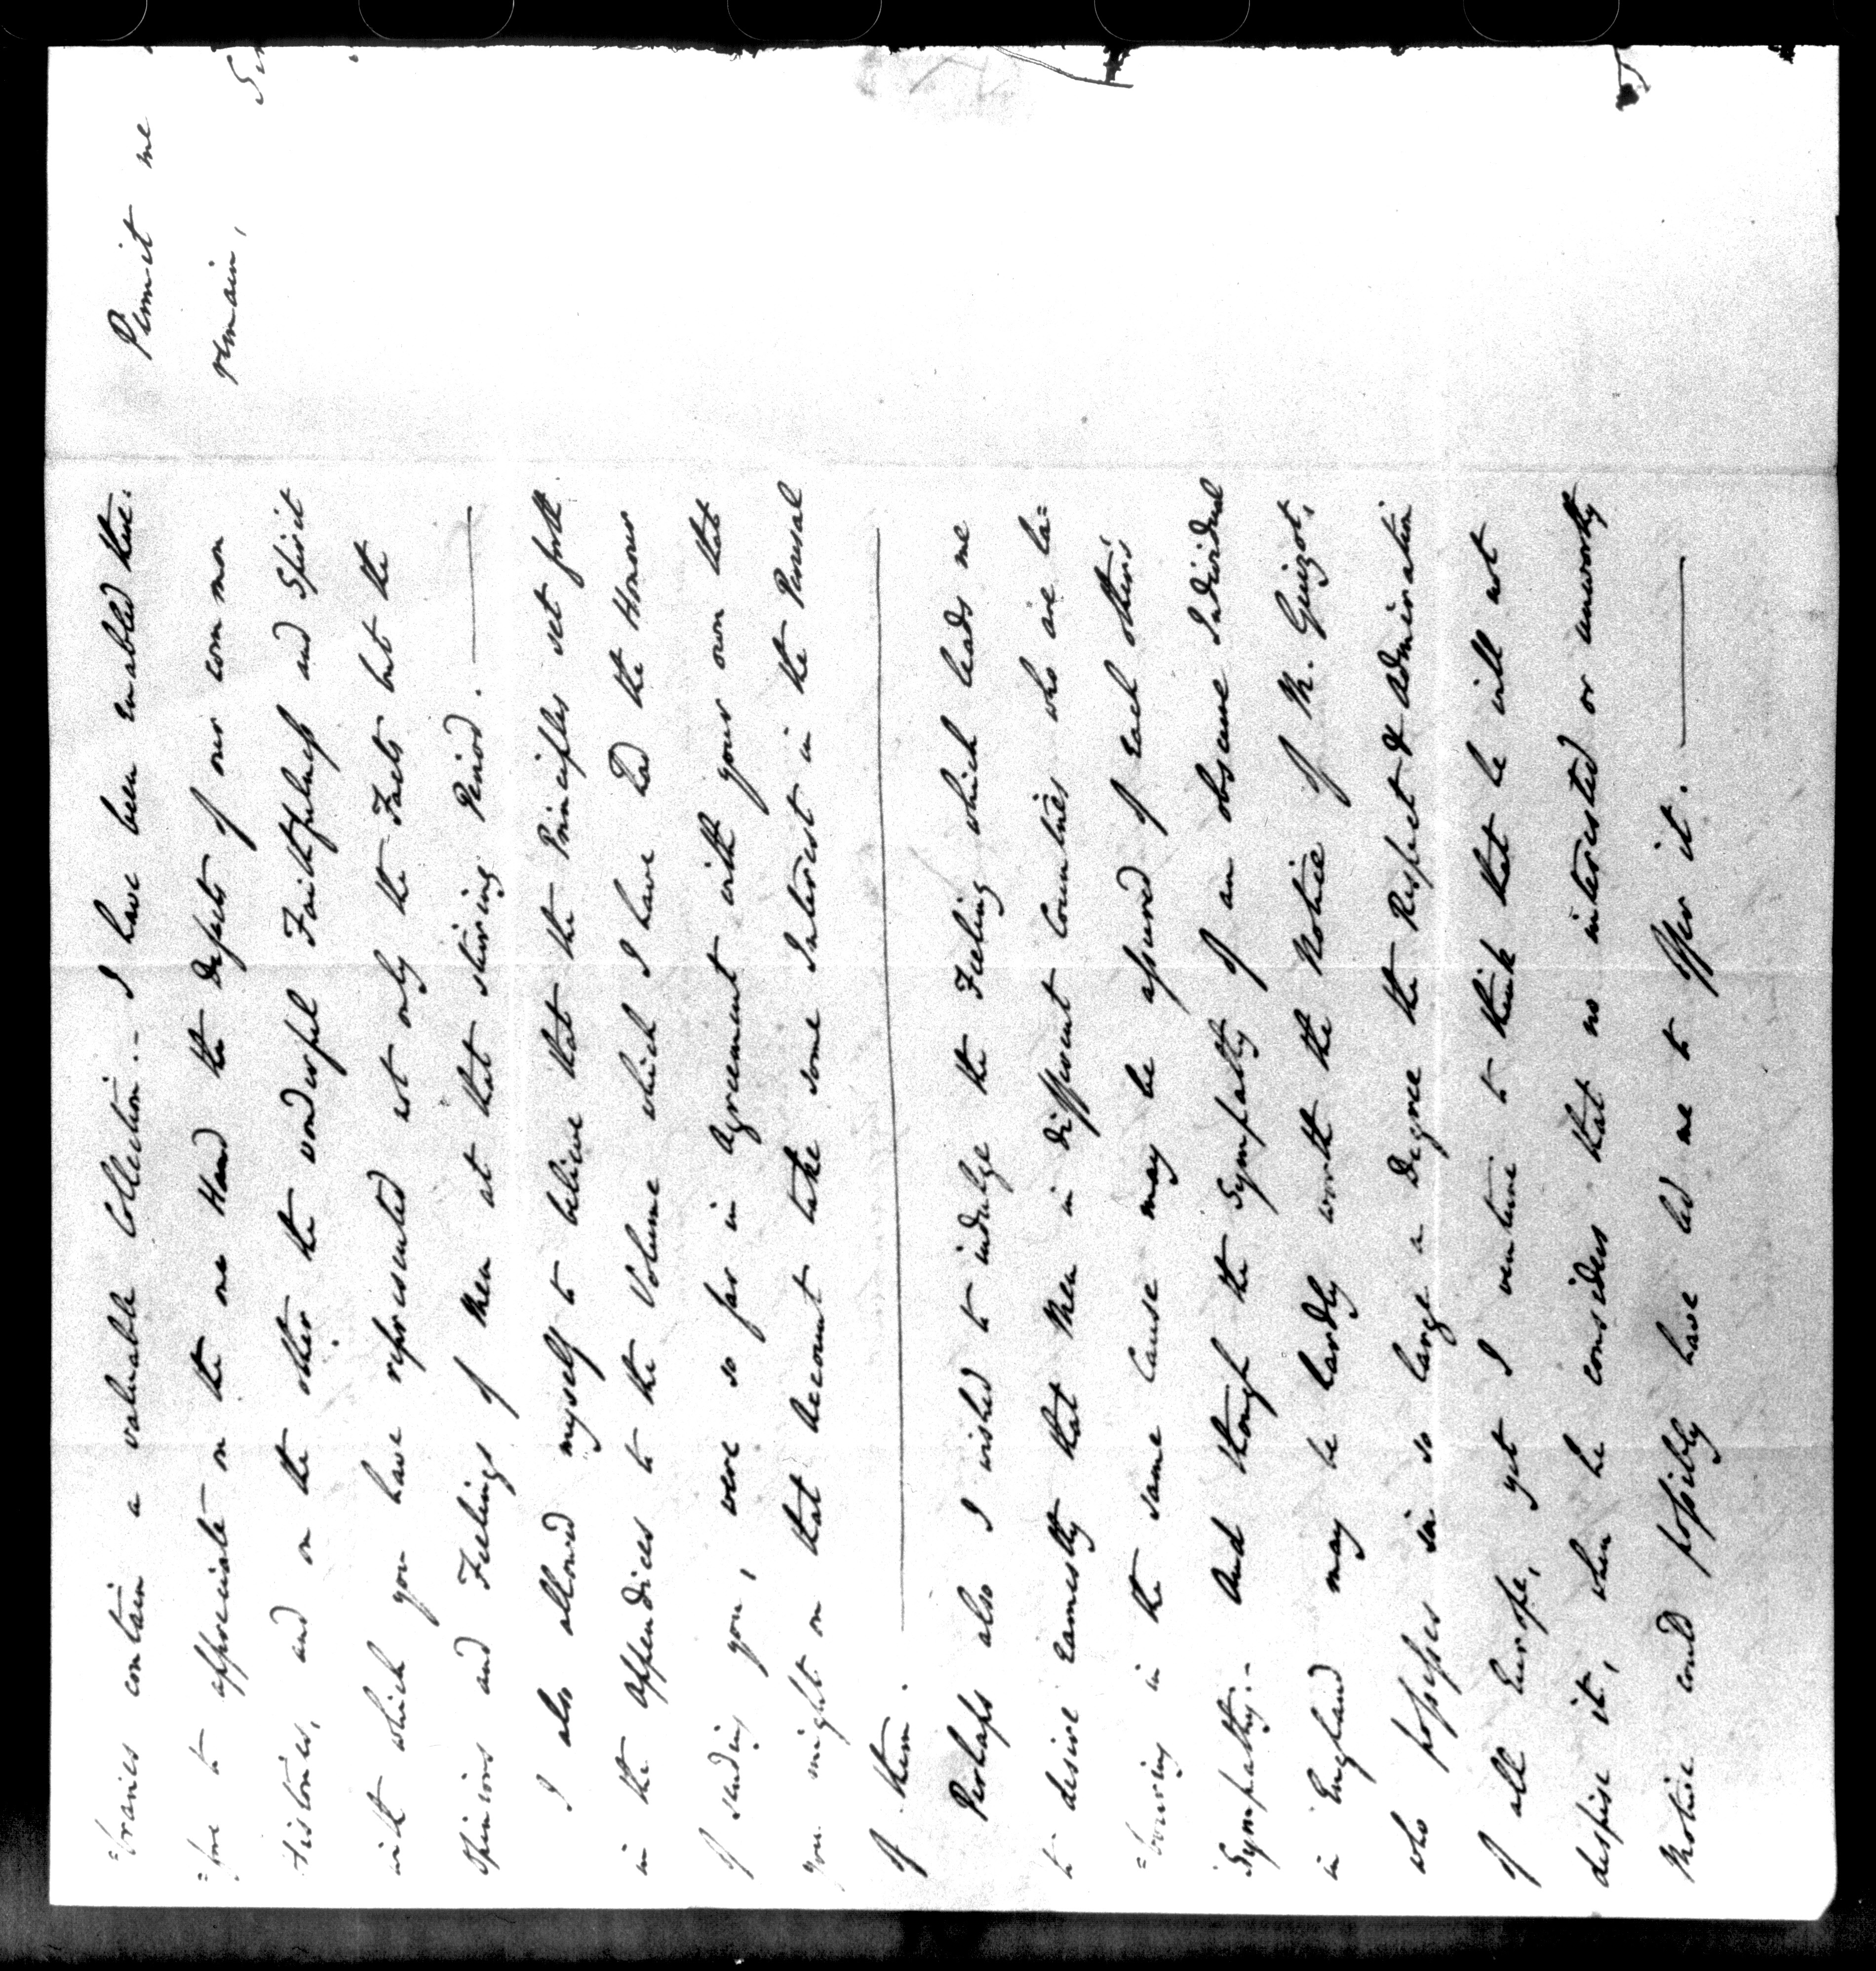 =braries contain a valuable Collection. - I have been enabled there=
=fore to appreciate on the one Hand the Defects of our common
Histories, and on the other the wonderful Faithfulness and Spirit
with which you have represented not only the Facts but the
Opinions and Feelings of Men at that stirring Period. —
I also allowed myself to believe that the Principles set forth
in the Appendices to the Volume which I have had the Honour
of sending you, were so far in Agreement with your own that
you might on that Account take some Interest in the Perusal
of them. —
Perhaps also I wished to indulge the Feeling which leads me
to desire earnestly that Men in different Countries who are la=
=bouring in the same Cause may be assured of each other's
Sympathy. - And though the Sympathy of an obscure Individual
in England may be hardly worth the Notice of M. Guizot,
who possesses in so large a Degree the Respect & Admiration
of all Europe, yet I venture to think that he will not
despise it, when he considers that no interested or unworthy
Motive could possibly have led me to offer it. —
Permit me
remain,